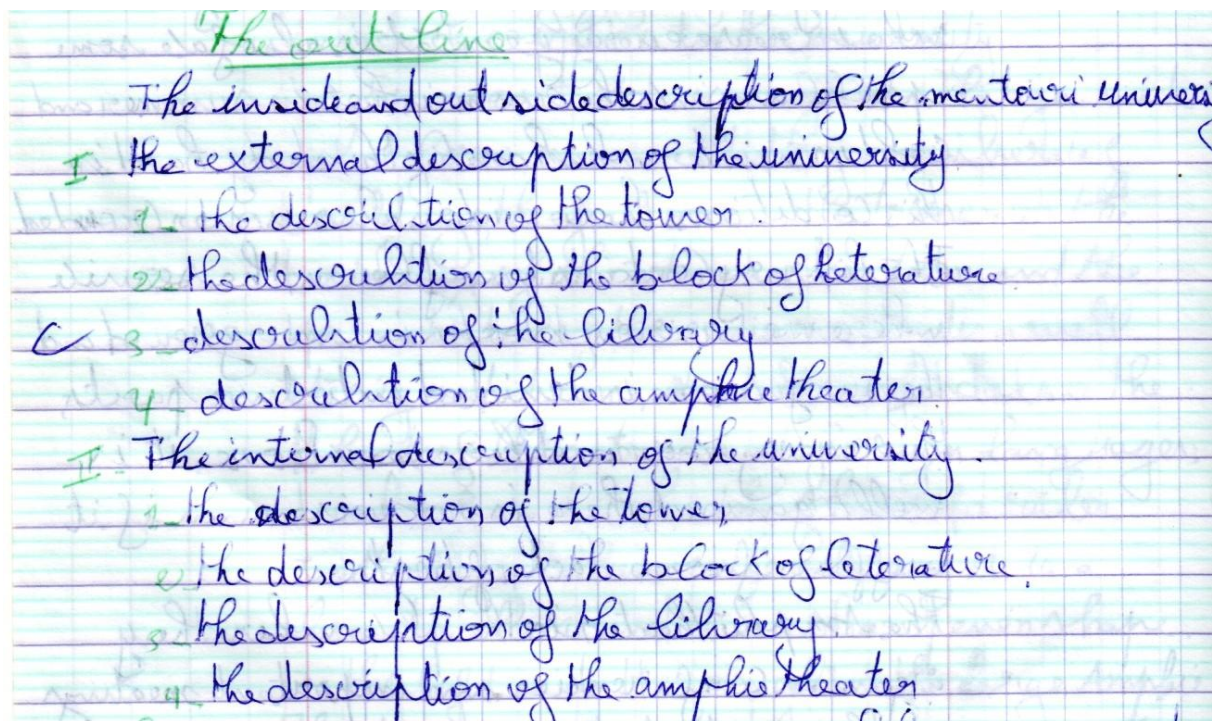 The out line
The inside and out side description of the mentouri univers
I the external description of the university
1- the description of the tower.
2- the description of the block of leterature
3- description of the library
4- description of the amphie theater
II The internal description of the university.
1- the description of the tower
2 the description of the block of leterature.
3- the description of the library.
4- the description of the amphie theater